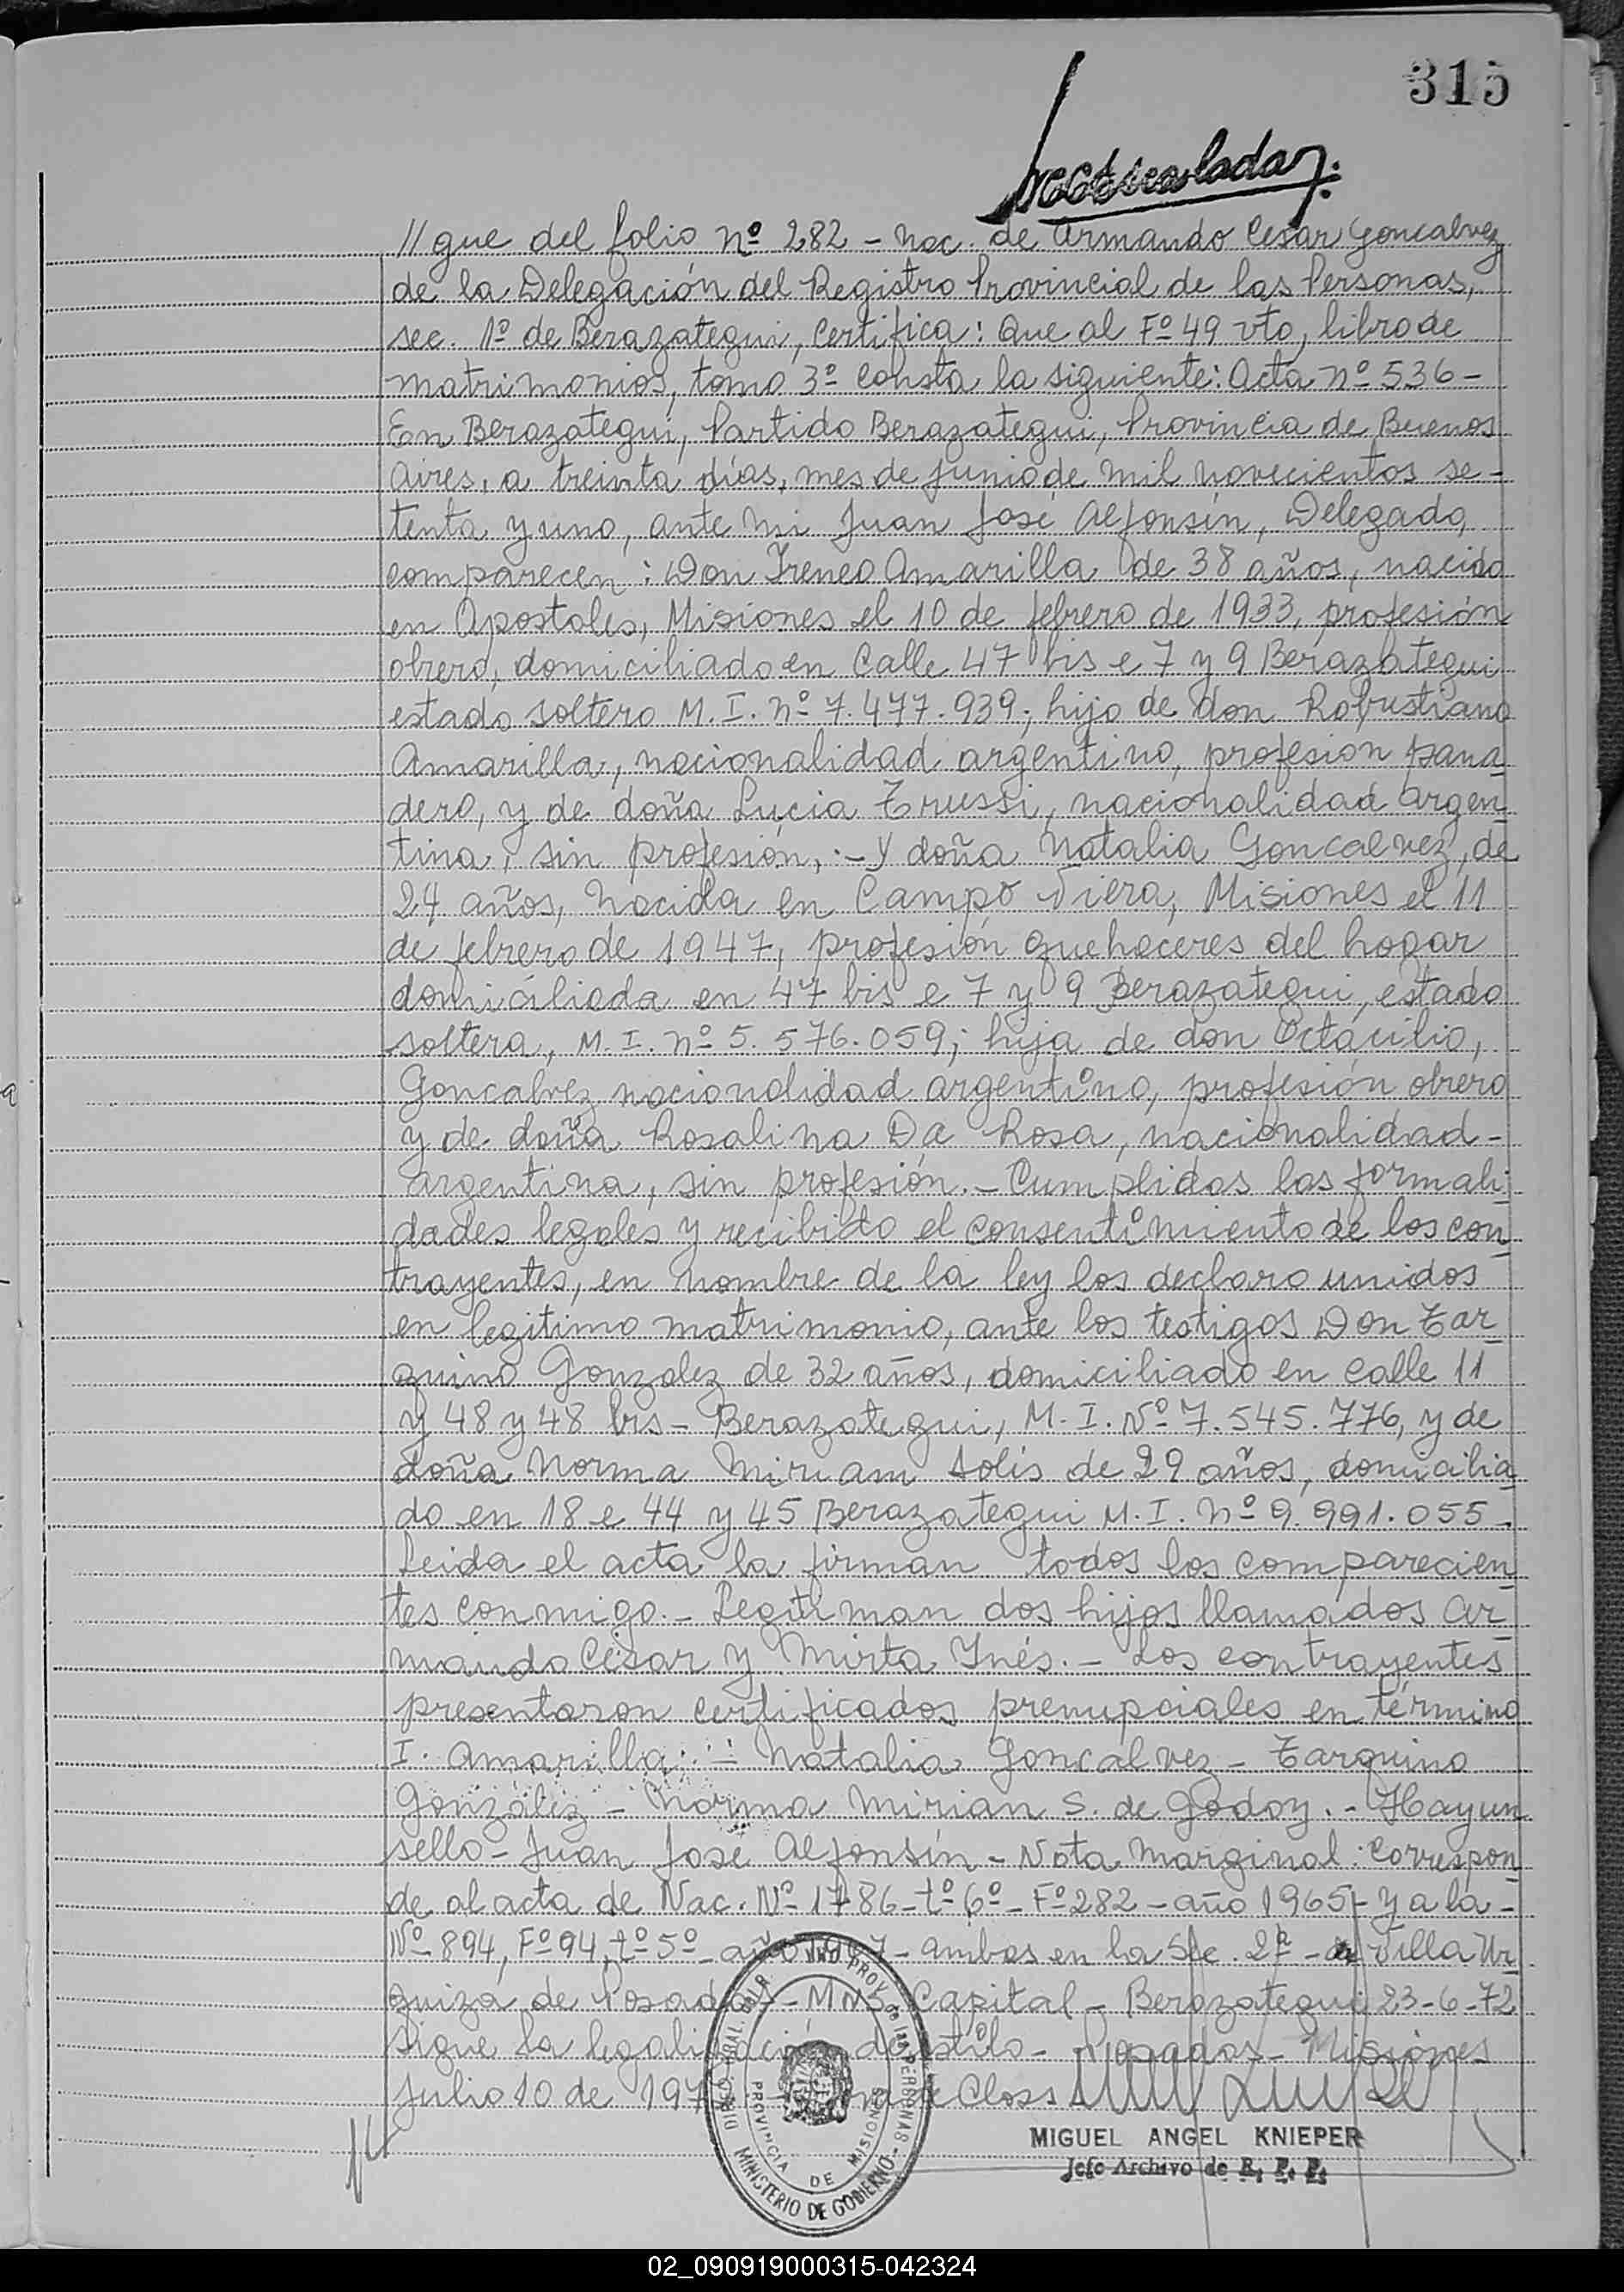 315
// gue del folio nº 282 - Nac. de Armando Cesar Goncalvez
de la Delegación del Registro Provincial de las Personas,
sec. 1º de Berazategui, Certifica: Que al Fº 49 vto, libro de
matrimonios, tomo 3º consta la siguiente: Acta nº 536 -
En Berazategui, Partido Berazategui, Provincia de Buenos
Aires, a treinta días, mes de Junio de mil novecientos se-
tenta y uno, ante mi Juan José Alfonsín, Delegado,
comparecen: Don Ireneo Amarilla de 38 años, nacido
en Apostoles, Misiones el 10 de febrero de 1933, profesión
obrero, domiciliado en Calle 47 bis e 7 y 9 Berazategui
estado soltero M. I. nº 7.477.939; hijo de don Robustiano
Amarilla, nacionalidad argentino, profesion pana-
dero, y de doña Lucia Trussi, nacionalidad argen-
tina, sin profesión, .- y doña Natalia Goncalvez, de
24 años, nacida en Campo Viera, Misiones el 11
de febrero de 1947, profesión quehaceres del hogar
domiciliada en 47 bis e 7 y 9 Berazategui, estado
soltera, M. I. nº 5. 576.059; hija de don Octácilio,
Goncalvez nacionalidad argentino, profesión obrero
y de doña Rosalina Da Rosa, nacionalidad -
argentina, sin profesión. - Cumplidas las formali-
dades legales y recibido el consentimiento de los con-
trayentes, en nombre de la ley los declaro unidos
en legitimo matrimonio, ante los testigos Don Tar-
quino Gonzalez de 32 años, domiciliado en calle 11
y 48 y 48 bis - Berazategui, M. I. Nº 7. 545. 776, y de
doña Norma Miriam Solis de 29 años, domicilia-
do en 18 e 44 y 45 Berazategui M. I. nº 9. 991. 055 -
Leida el acta la firman todos los comparecien-
tes conmigo. - Legitiman dos hijos llamados Ar-
mando César y Mirta Inés. - Los contrayentes
presentaron certificados prenupciales en término
I. Amarilla. - Natalia Goncalvez - Tarquino
González - Norma Mirian S. de Godoy. - Hay un
sello - Juan José Alfonsín - Nota Marginal: Correspon-
de al acta de Nac. Nº 1786 - tº 6º - Fº 282 - año 1965 - y a la -
Nº 894, Fº 94, tº 5º - año - ambas en la Sec. 2ª - Villa Ur-
quiza de Posadas - Mns. Capital - Berazategui 23-6-72
Sigue la legalización de estilo - Posadas - Misiones
Julio 10 de Closs
REG. GRAL. DEL R. PROV. de las PERSONAS
MINISTERIO DE GOBIERNO
PROVINCIA DE MISIONES
MIGUEL ANGEL KNIEPER
Jefe Archivo de R. P. P.
02_090919000315-042324